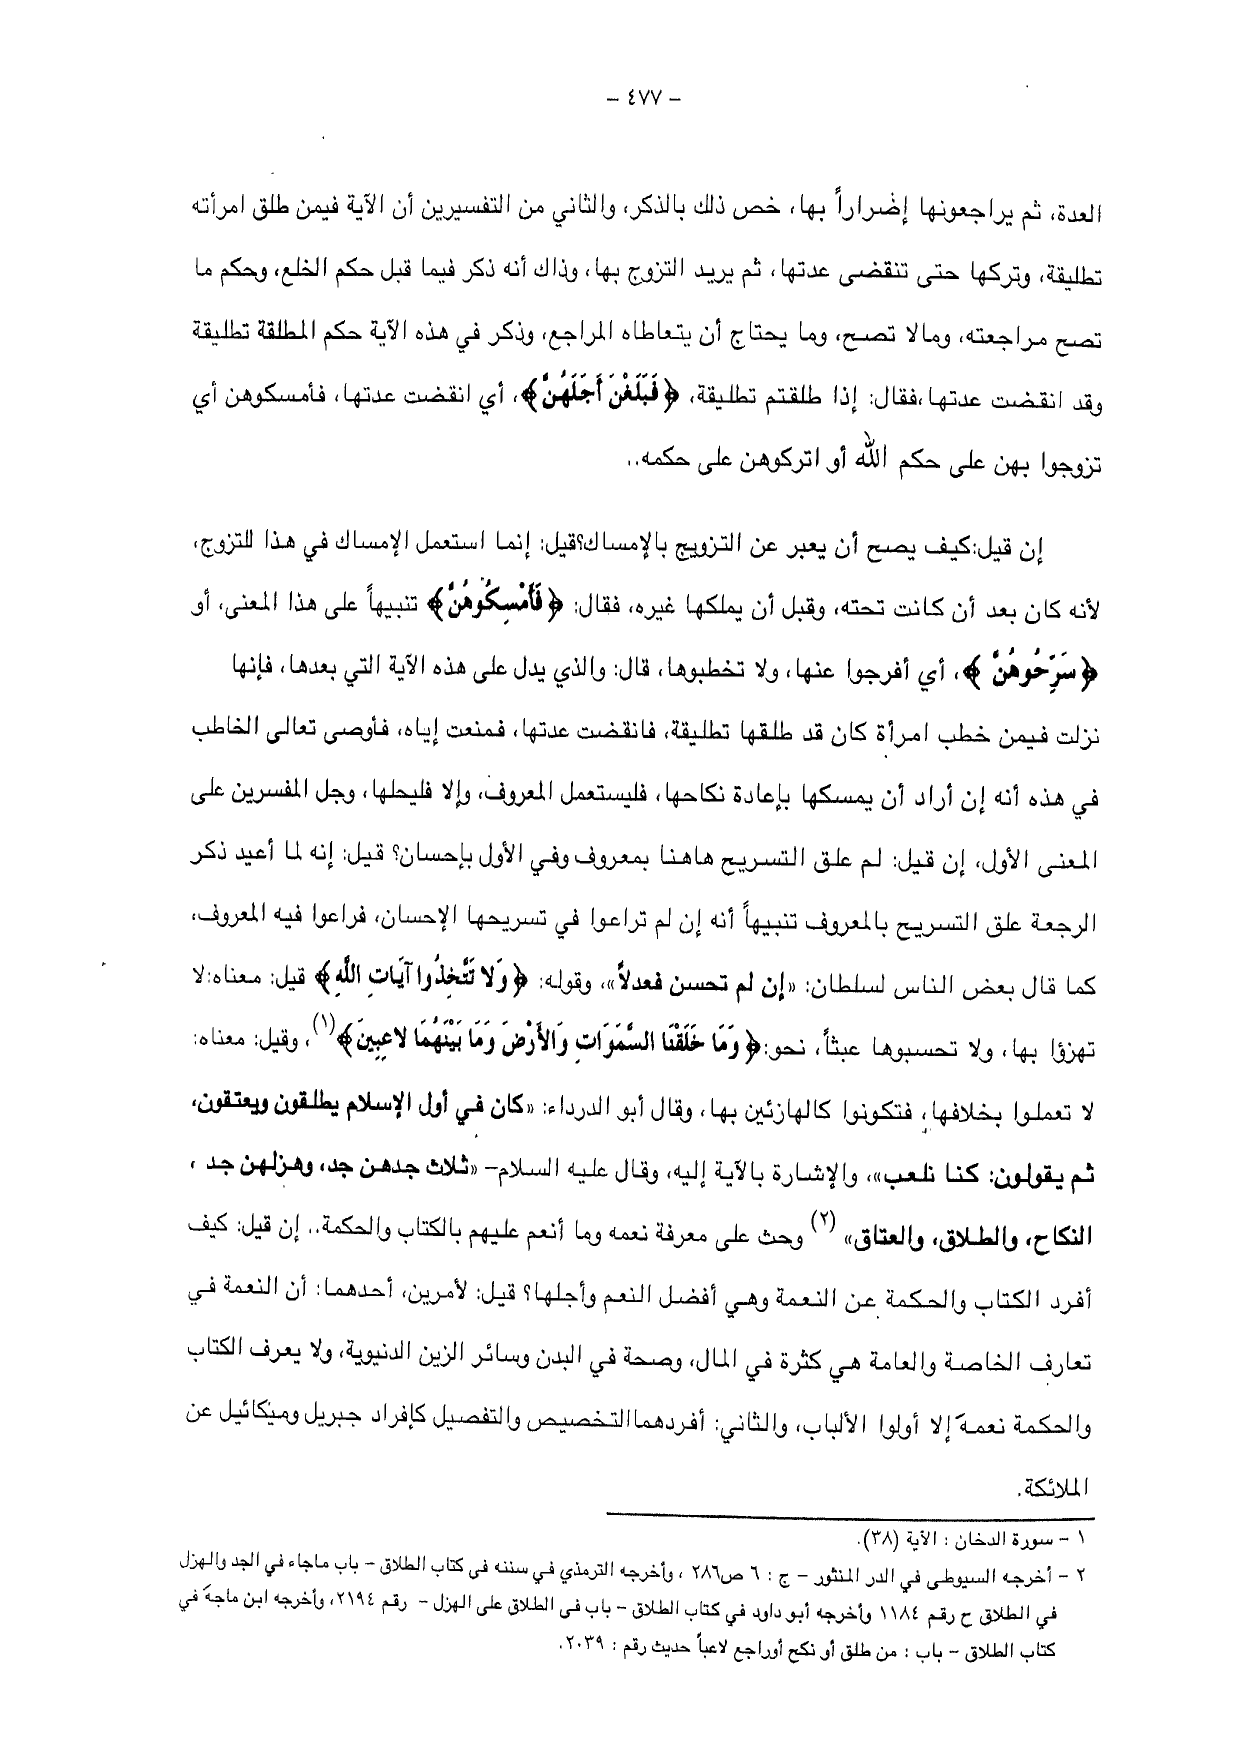 - ٤٧٧ -
العدة، ثم يراجعونها إضراراً بها، خص ذلك بالذكر، والثاني من التفسيرين أن الآية فيمن طلق امرأته
تطليقة، وتركها حتى تنقضي عدتها، ثم يريد التزوج بها، وذاك أنه ذكر فيما قبل حكم الخلع، وحكم ما
تصح مراجعته، ومالا تصح، وما يحتاج أن يتعاطاه المراجع، وذكر في هذه الآية حكم المطلقة تطليقة
وقد انقضت عدتها،فقال: إذا طلقتم تطليقة، ﴿فَبَلَغْنَ أَجَلَهُنَّ﴾، أي انقضت عدتها، فأمسكوهن أي
تزوجوا بهن على حكم الله أو اتركوهن على حكمه..
إن قيل:كيف يصح أن يعبر عن التزويج بالإمساك؟قيل: إنما استعمل الإمساك في هذا للتزوج،
لأنه كان بعد أن كانت تحته، وقبل أن يملكها غيره، فقال: ﴿فَأَمْسِكُوهُنَّ﴾ تنبيهاً على هذا المعنى، أو
﴿سَرِّحُوهُنَّ﴾، أي أفرجوا عنها، ولا تخطبوها، قال: والذي يدل على هذه الآية التي بعدها، فإنها
نزلت فيمن خطب امرأة كان قد طلقها تطليقة، فانقضت عدتها، فمنعت إياه، فأوصى تعالى الخاطب
في هذه أنه إن أراد أن يمسكها بإعادة نكاحها، فليستعمل المعروف، وإلا فليحلها، وجل المفسرين على
المعنى الأول، إن قيل: لم علق التسريح هاهنا بمعروف وفي الأول بإحسان؟ قيل: إنه لما أعيد ذكر
الرجعة علق التسريح بالمعروف تنبيهاً أنه إن لم تراعوا في تسريحها الإحسان، فراعوا فيه المعروف،
كما قال بعض الناس لسلطان: «إن لم تحسن فعدلاً»، وقوله: ﴿وَلا تَتَّخِذُوا آيَاتِ اللَّهِ﴾ قيل: معناه:لا
تهزؤا بها، ولا تحسبوها عبثاً، نحو:﴿وَمَا خَلَقْنَا السَّمَوَاتِ وَالأَرْضَ وَمَا بَيْنَهُمَا لاعِبِينَ﴾(١)، وقيل: معناه:
لا تعملوا بخلافها، فتكونوا كالهازئين بها، وقال أبو الدرداء: «كان في أول الإسلام يطلقون ويعتقون،
ثم يقولون: كنا نلعب»، والإشارة بالآية إليه، وقال عليه السلام- «ثلاث جدهن جد، وهزلهن جد ،
النكاح، والطلاق، والعتاق» (٢) وحث على معرفة نعمه وما أنعم عليهم بالكتاب والحكمة.. إن قيل: كيف
أفرد الكتاب والحكمة عن النعمة وهي أفضل النعم وأجلها؟ قيل: لأمرين، أحدهما: أن النعمة في
تعارف الخاصة والعامة هي كثرة في المال، وصحة في البدن وسائر الزين الدنيوية، ولا يعرف الكتاب
والحكمة نعمة إلا أولوا الألباب، والثاني: أفردهما التخصيص والتفصيل كإفراد جبريل وميكائيل عن
الملائكة.
١ - سورة الدخان : الآية (٣٨).
٢ - أخرجه السيوطي في الدر المنثور - ج : ٦ ص٢٨٦ ، وأخرجه الترمذي في سننه في كتاب الطلاق - باب ماجاء في الجد والهزل
في الطلاق ح رقم ١١٨٤ وأخرجه أبو داود في كتاب الطلاق - باب في الطلاق على الهزل - رقم ٢١٩٤، وأخرجه ابن ماجة في
كتاب الطلاق - باب : من طلق أو نكح أوراجع لاعباً حديث رقم : ٢٠٣٩.